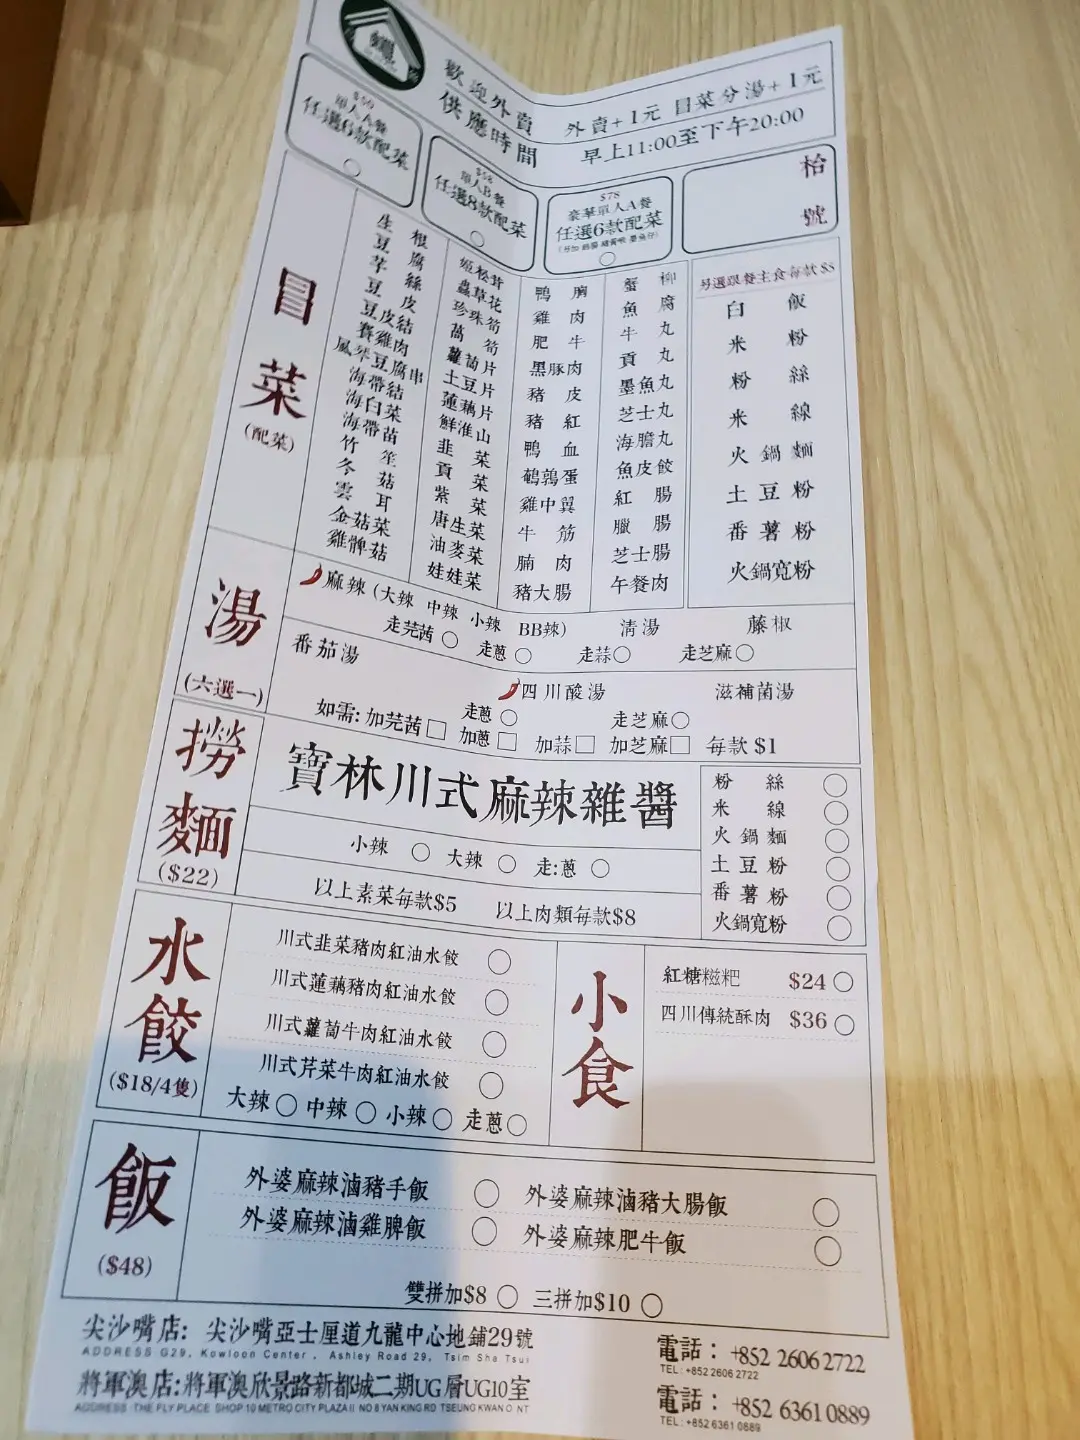 歡迎外賣 外賣+1元 冒菜分湯+1元
供應時間 早上11:00至下午20:00
$50
單人A餐
任選6款配菜
$58
單人B餐
任選8款配菜
$78
豪華單人A餐
任選6款配菜
枱號
冒菜
(配菜)
生根
豆腐
芋絲
豆皮
豆皮結
賽雞肉
風琴豆腐串
海帶結
海白菜
海帶苗
竹笙
冬菇
雲耳
金菇菜
雞髀菇
姬松茸
蟲草花
珍珠筍
萵筍
蘿蔔片
土豆片
蓮藕片
鮮淮山
韭菜
貢菜
紫菜
唐生菜
油麥菜
娃娃菜
鴨胸
雞肉
肥牛
黑豚肉
豬皮
豬紅
鴨血
鵪鶉蛋
雞中翼
牛筋
腩肉
豬大腸
蟹柳
魚腐
牛丸
貢丸
墨魚丸
芝士丸
海膽丸
魚皮餃
紅腸
臘腸
芝士腸
午餐肉
另選跟餐主食每款$5
白飯
米粉
粉絲
米線
火鍋麵
土豆粉
番薯粉
火鍋寬粉
湯
(六選一)
麻辣(大辣 中辣 小辣 BB辣) 清湯 藤椒
走芫茜 走蔥 走蒜 走芝麻
番茄湯 四川酸湯 滋補菌湯
走蔥 走芝麻
如需: 加芫茜 加蔥 加蒜 加芝麻 每款 $1
撈麵
($22)
寶林川式麻辣雜醬
小辣 大辣 走:蔥
以上素菜每款$5 以上肉類每款$8
粉絲
米線
火鍋麵
土豆粉
番薯粉
火鍋寬粉
水餃
($18/4隻)
川式韭菜豬肉紅油水餃
川式蓮藕豬肉紅油水餃
川式蘿蔔牛肉紅油水餃
川式芹菜牛肉紅油水餃
大辣 中辣 小辣 走蔥
小食
紅糖糍粑 $24
四川傳統酥肉 $36
飯
($48)
外婆麻辣滷豬手飯 外婆麻辣滷豬大腸飯
外婆麻辣滷雞脾飯 外婆麻辣肥牛飯
雙拼加$8 三拼加$10
尖沙嘴店: 尖沙嘴亞士厘道九龍中心地鋪29號 電話: +852 2606 2722
ADDRESS G29, Kowloon Center, Ashley Road 29, Tsim Sha Tsui TEL: +852 2606 2722
將軍澳店:將軍澳欣景路新都城二期UG層UG10室 電話: +852 6361 0889
ADDRESS :THE FLY PLACE SHOP 10 METRO CITY PLAZA II NO 8 YAN KING RD TSEUNG KWAN O NT TEL: +852 6361 0889